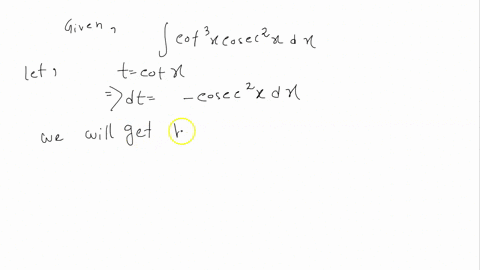 Given,
∫ cot³x cosec²x dx
let, t = cot x
⇒ dt = - cosec²x dx
we will get